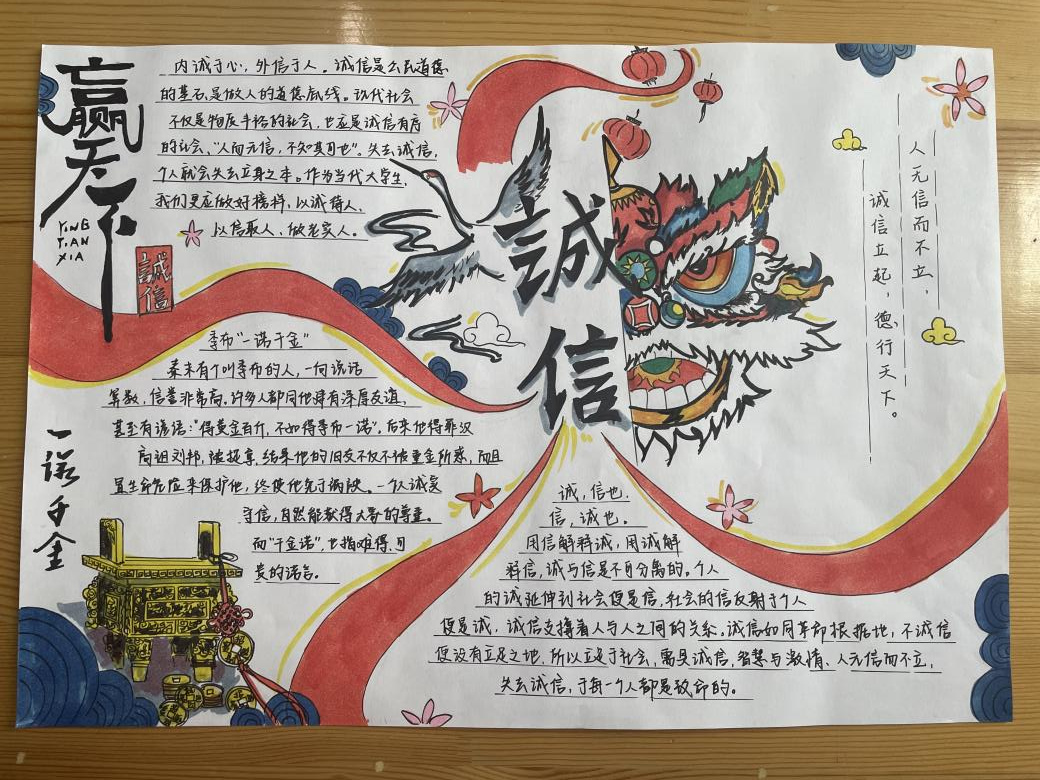 赢天下
YING
TIAN
XIA
誠信
内诚于心，外信于人。诚信是公民道德
的基石，是做人的道德底线。现代社会
不仅是物质丰裕的社会，也应是诚信有序
的社会、“人而无信，不知其可也”。失去诚信，
个人就会失去立身之本。作为当代大学生，
我们更应做好榜样，以诚待人、
以信取人，做老实人。
誠
信
人无信而不立，
诚信立起，德行天下。
季布“一诺千金”
秦末有个叫季布的人，一向说话
算数，信誉非常高，许多人都同他建有深厚友谊，
甚至有谚语：“得黄金百斤，不如得季布一诺”。后来他得罪汉
高祖刘邦，被捉拿，结果他的旧友不仅不被重金所惑，而且
冒生命危险来保护他，终使他免于祸殃。一个人诚实
守信，自然能获得大家的尊重。
而“千金诺”，也指难得、可
贵的诺言。
一诺千金
诚，信也，
信，诚也。
用信解释诚，用诚解
释信，诚与信是不可分离的。个人
的诚延伸到社会便是信，社会的信反射于个人
便是诚，诚信支撑着人与人之间的关系。诚信如同革命根据地，不诚信
便没有立足之地，所以立足于社会，需具诚信、智慧与激情、人无信而不立，
失去诚信，于每一个人都是致命的。